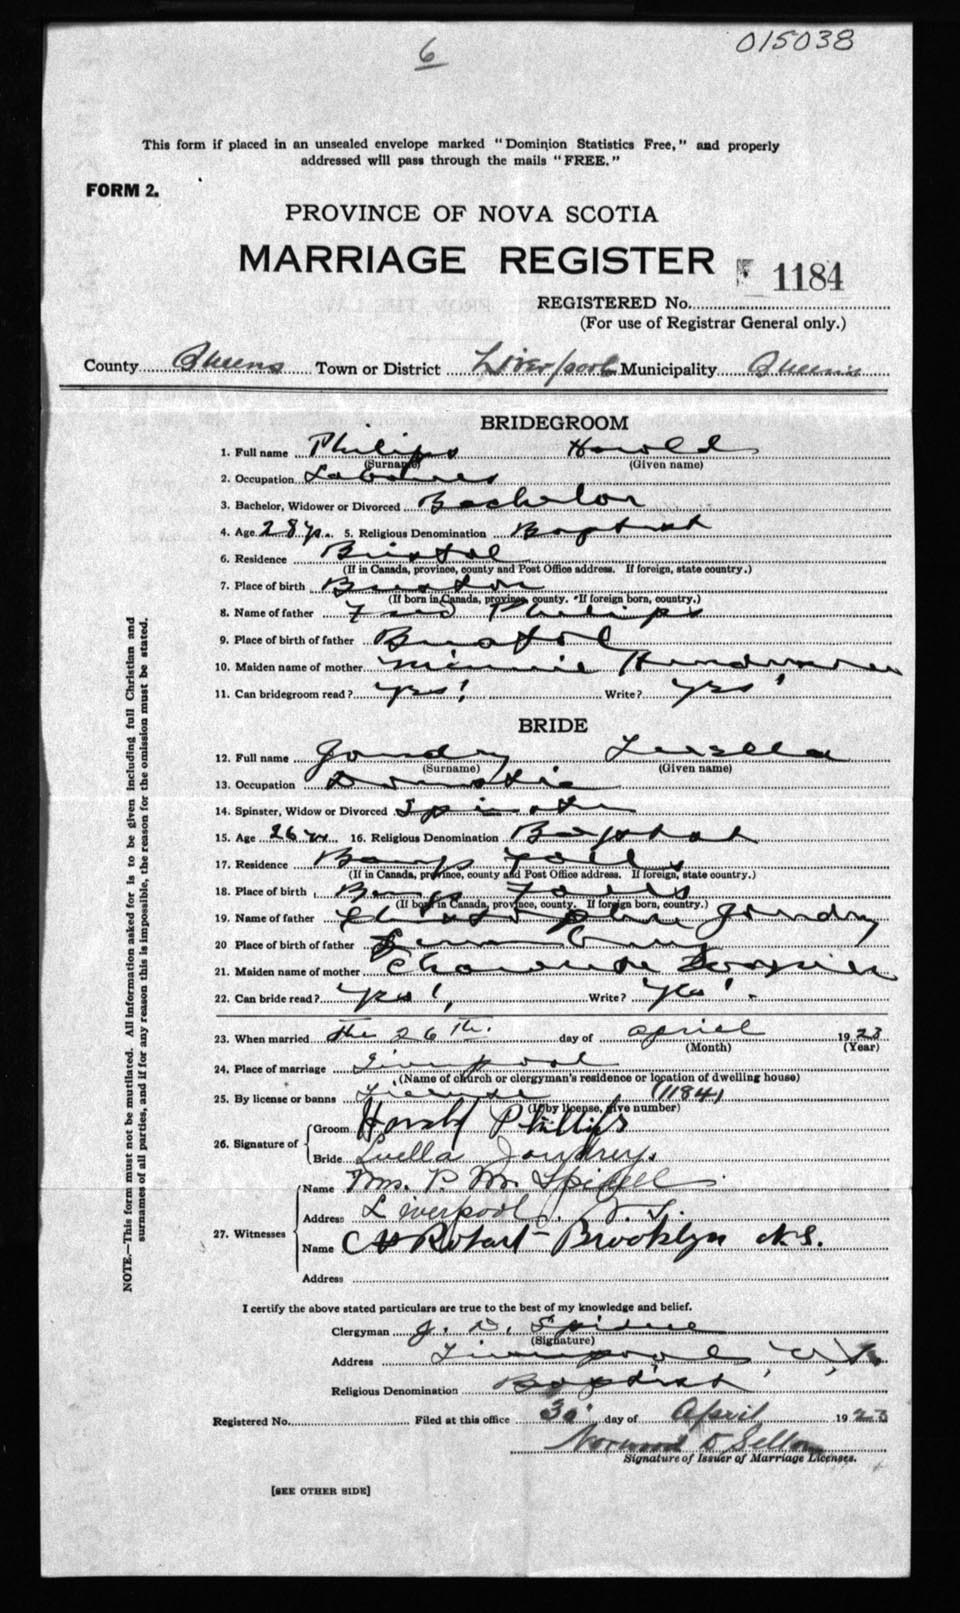 6
015038
This form if placed in an unsealed envelope marked "Dominion Statistics Free," and properly
addressed will pass through the mails "FREE."
FORM 2.
PROVINCE OF NOVA SCOTIA
MARRIAGE REGISTER
1184
REGISTERED No.
(For use of Registrar General only.)
County Queens Town or District Liverpool Municipality Queens
BRIDEGROOM
1. Full name Philips Harold
(Surname) (Given name)
2. Occupation Laborer
3. Bachelor, Widower or Divorced Bachelor
4. Age 28 yrs. 5. Religious Denomination Baptist
6. Residence Bristol
(If in Canada, province, county and Post Office address. If foreign, state country.)
7. Place of birth
(If born in Canada, province, county. If foreign born, country.)
8. Name of father Fred Philips
9. Place of birth of father Bristol
10. Maiden name of mother Minnie
11. Can bridegroom read? Yes! Write? Yes!
BRIDE
12. Full name
(Surname) (Given name)
13. Occupation Domestic
14. Spinster, Widow or Divorced Spinster
15. Age 26 yrs 16. Religious Denomination Baptist
17. Residence Bangs Falls
(If in Canada, province, county and Post Office address. If foreign, state country.)
18. Place of birth Bangs Falls
(If born in Canada, province, county. If foreign born, country.)
19. Name of father
20 Place of birth of father
21. Maiden name of mother
22. Can bride read? Yes!, Write? Yes!.
23. When married the 26th. day of April 1923
(Month) (Year)
24. Place of marriage Liverpool
(Name of church or clergyman's residence or location of dwelling house)
25. By license or banns License (1184)
(If by license, give number)
26. Signature of
Groom Harold Phillips
Bride Luella
27. Witnesses
Name Mrs. P. M. Spidell
Address Liverpool, N.S.
Name Robart Brooklyn N.S.
Address
I certify the above stated particulars are true to the best of my knowledge and belief.
Clergyman J. D. Spidell
(Signature)
Address Liverpool, N.S.
Religious Denomination Baptist
Registered No. Filed at this office 30 day of April 1923
Norwood D Sellon
Signature of Issuer of Marriage Licenses.
[SEE OTHER SIDE]
NOTE.—This form must not be mutilated. All information asked for is to be given including full Christian and
surnames of all parties, and if for any reason this is impossible, the reason for the omission must be stated.